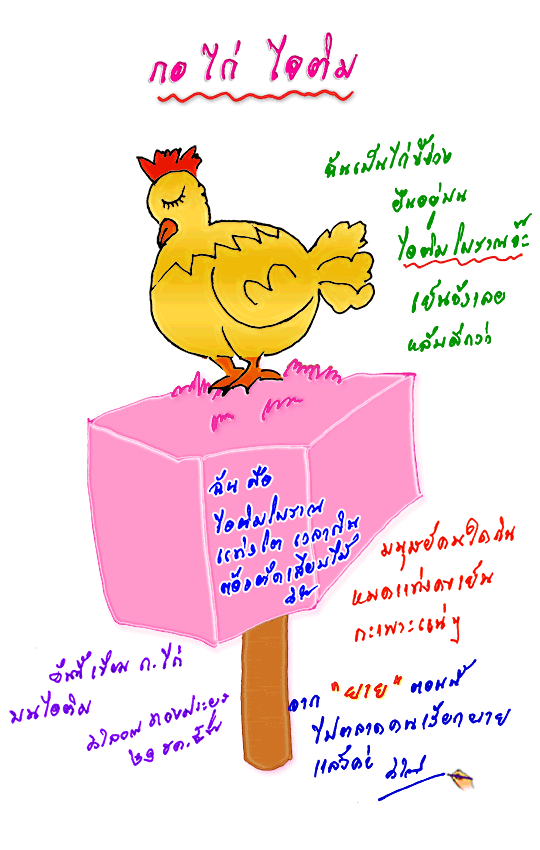 กอ ไก่ ไอติม
ฉันเป็นไก่ขี้ง่วง
ยืนอยู่บน
ไอติมโบราณจ๊ะ
เย็นจังเลย
หลับดีกว่า
ฉัน คือ
ไอติมโบราณ
แท่งโต เวลากิน
ต้องตัดเสียบไม้
มนุษย์คนใดกิน
หมดแท่งคงเย็น
กะเพาะแน่ๆ
วันนี้ เขียน ก.ไก่
บนไอติม
ทองประยูร
๒๑ ธค.
จาก "ยาย" ตอนนี้
ไปตลาดคนเรียกยาย
แล้วค่ะ